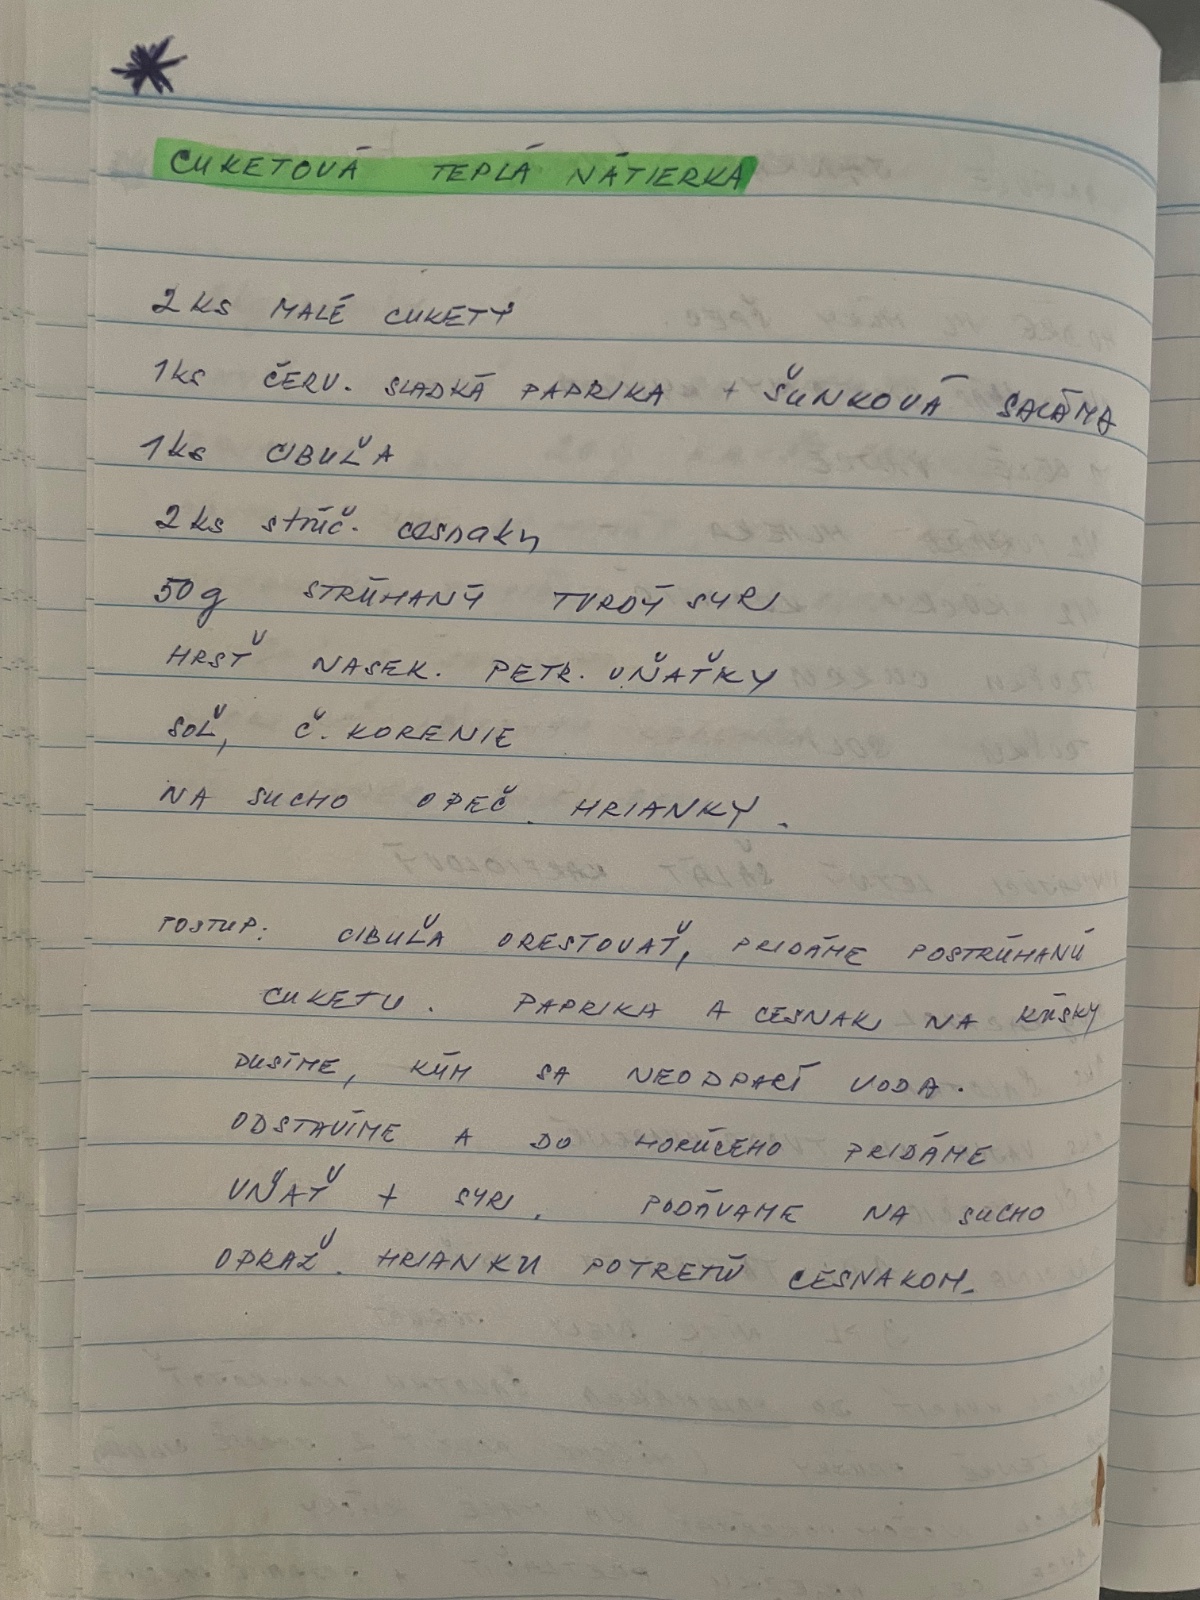 CUKETOVÁ TEPLÁ NÁTIERKA
2 ks MALÉ CUKETY
1 ks ČERV. SLADKÁ PAPRIKA + ŠUNKOVÁ SALÁMA
1 ks CIBUĽA
2 ks strúč. cesnaku
50 g STRÚHANÝ TVRDÝ SYR
HRSŤ NASEK. PETR. VŇAŤKY
SOĽ, Č. KORENIE
NA SUCHO OPEČ. HRIANKY.
POSTUP: CIBUĽA ORESTOVAŤ, PRIDÁME POSTRÚHANÚ
CUKETU. PAPRIKA A CESNAK NA KÚSKY
DUSÍME, KÝM SA NEODPARÍ VODA.
ODSTAVÍME A DO HORÚCEHO PRIDÁME
VŇAŤ + SYR. PODÁVAME NA SUCHO
OPRAŽ. HRIANKU POTRETÚ CESNAKOM.